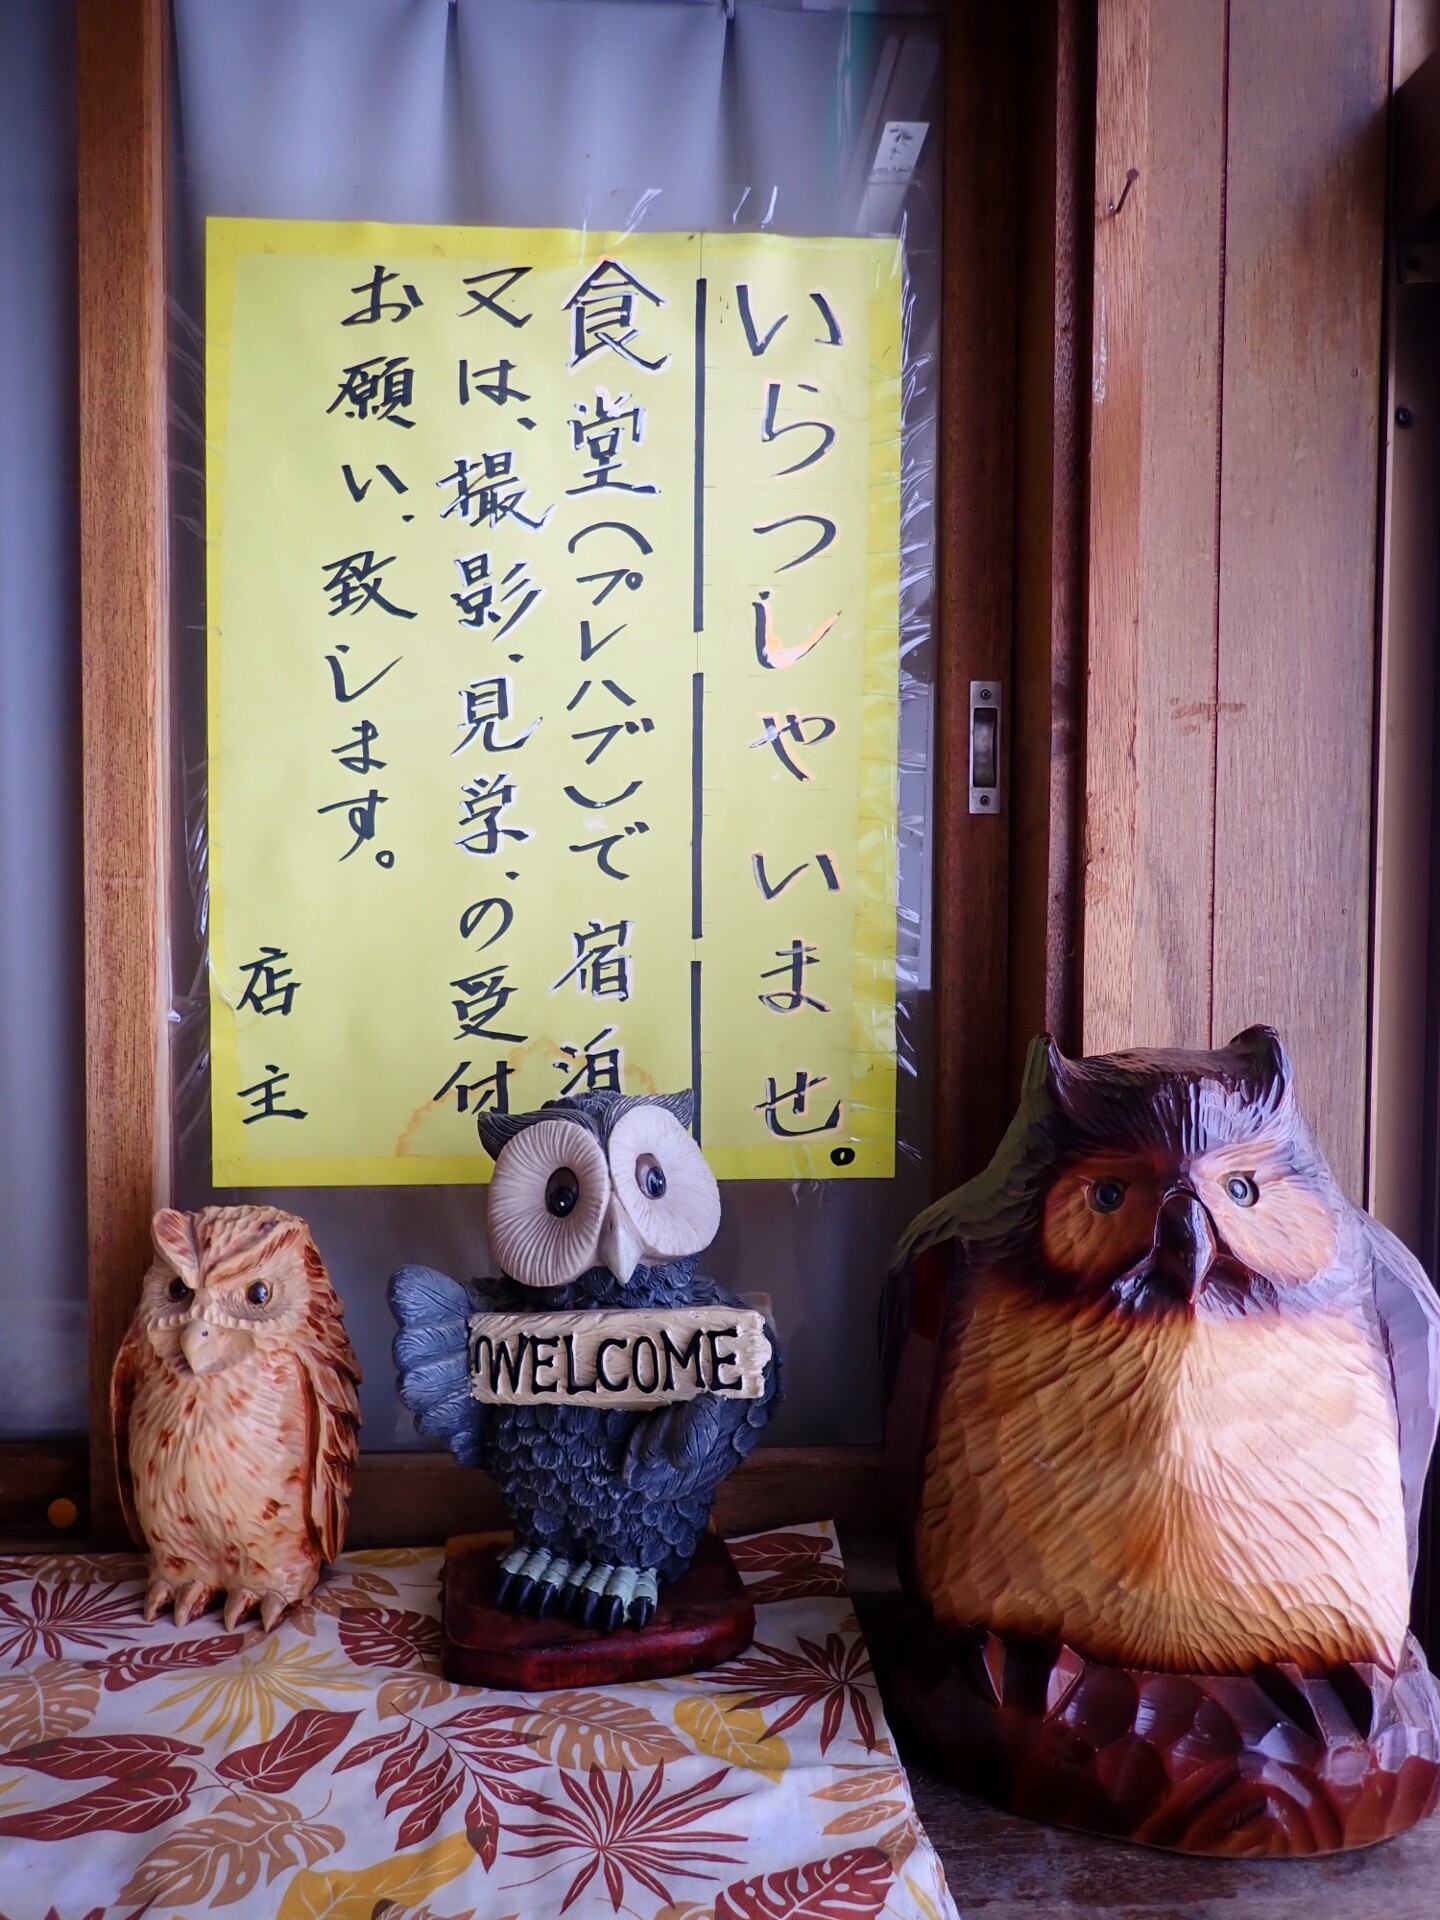 いらっしゃいませ。
食堂(プレハブ)で宿泊
又は、撮影、見学、の受付
お願い、致します。
店主
WELCOME